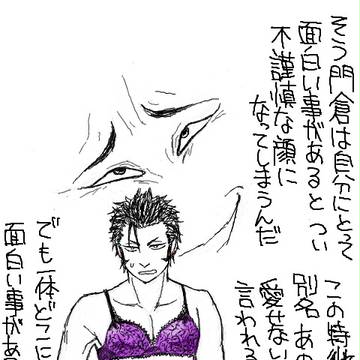 そう門倉は自分にとって
面白い事があると つい
不謹慎な顔に
なってしまうんだ
この時
別名 あの
愛せない
言われる
でも一体どこに
面白い事があ